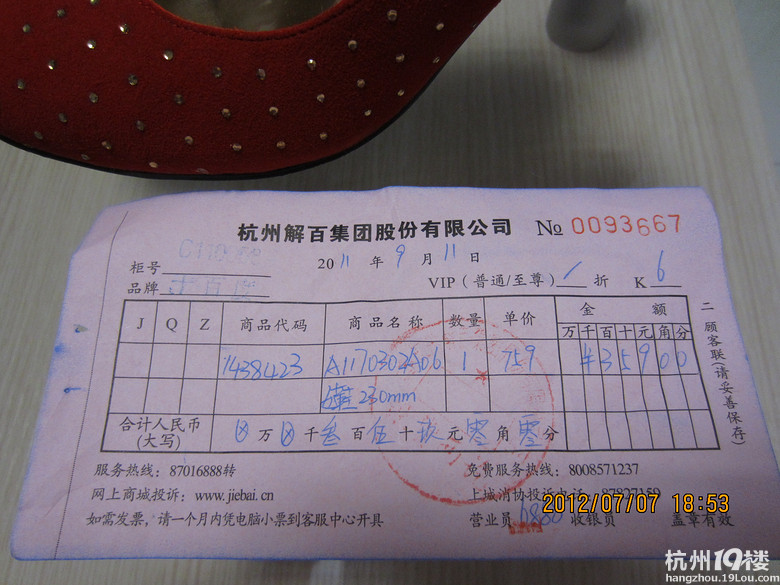 杭州解百集团股份有限公司 № 0093667
柜号
2011 年 9 月 11 日
品牌
VIP（普通/至尊） / 折 K 6
J Q Z 商品代码 商品名称 数量 单价 金额
万 千 百 十 元 角 分
1438423 A1170302A06 1 759 ¥ 3 5 9 0 0
鞋 230mm
合计人民币（大写） ⊗ 万 ⊗ 千 叁 百 伍 十 玖 元 零 角 零 分
二 顾客联（请妥善保存）
服务热线：87016888转 免费服务热线：8008571237
网上商城投诉：www.jiebai.cn 上城消协投诉电话：87827159
如需发票，请一个月内凭电脑小票到客服中心开具 营业员 6880 收银员 盖章有效
2012/07/07 18:53
杭州19楼
hangzhou.19Lou.com